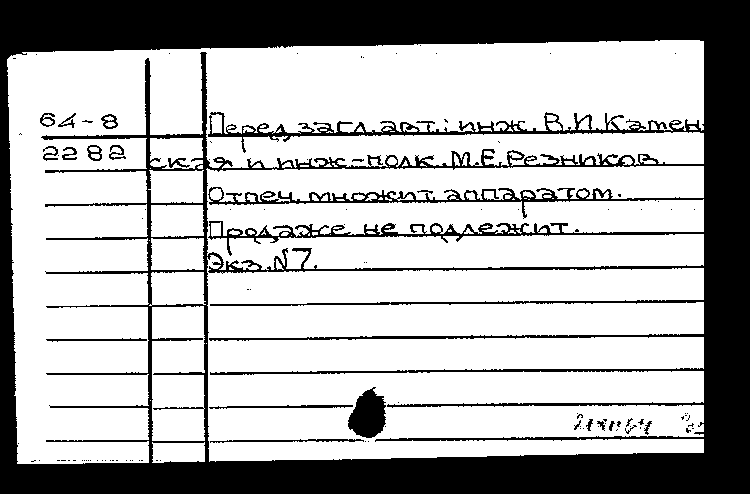 64-8 Перед загл. авт.: инж. В.И.Камен-
2282 ская и инж-полк. М.Е.Резников.
Отпеч. множит. аппаратом.
Продаже не подлежит.
Экз. N7.